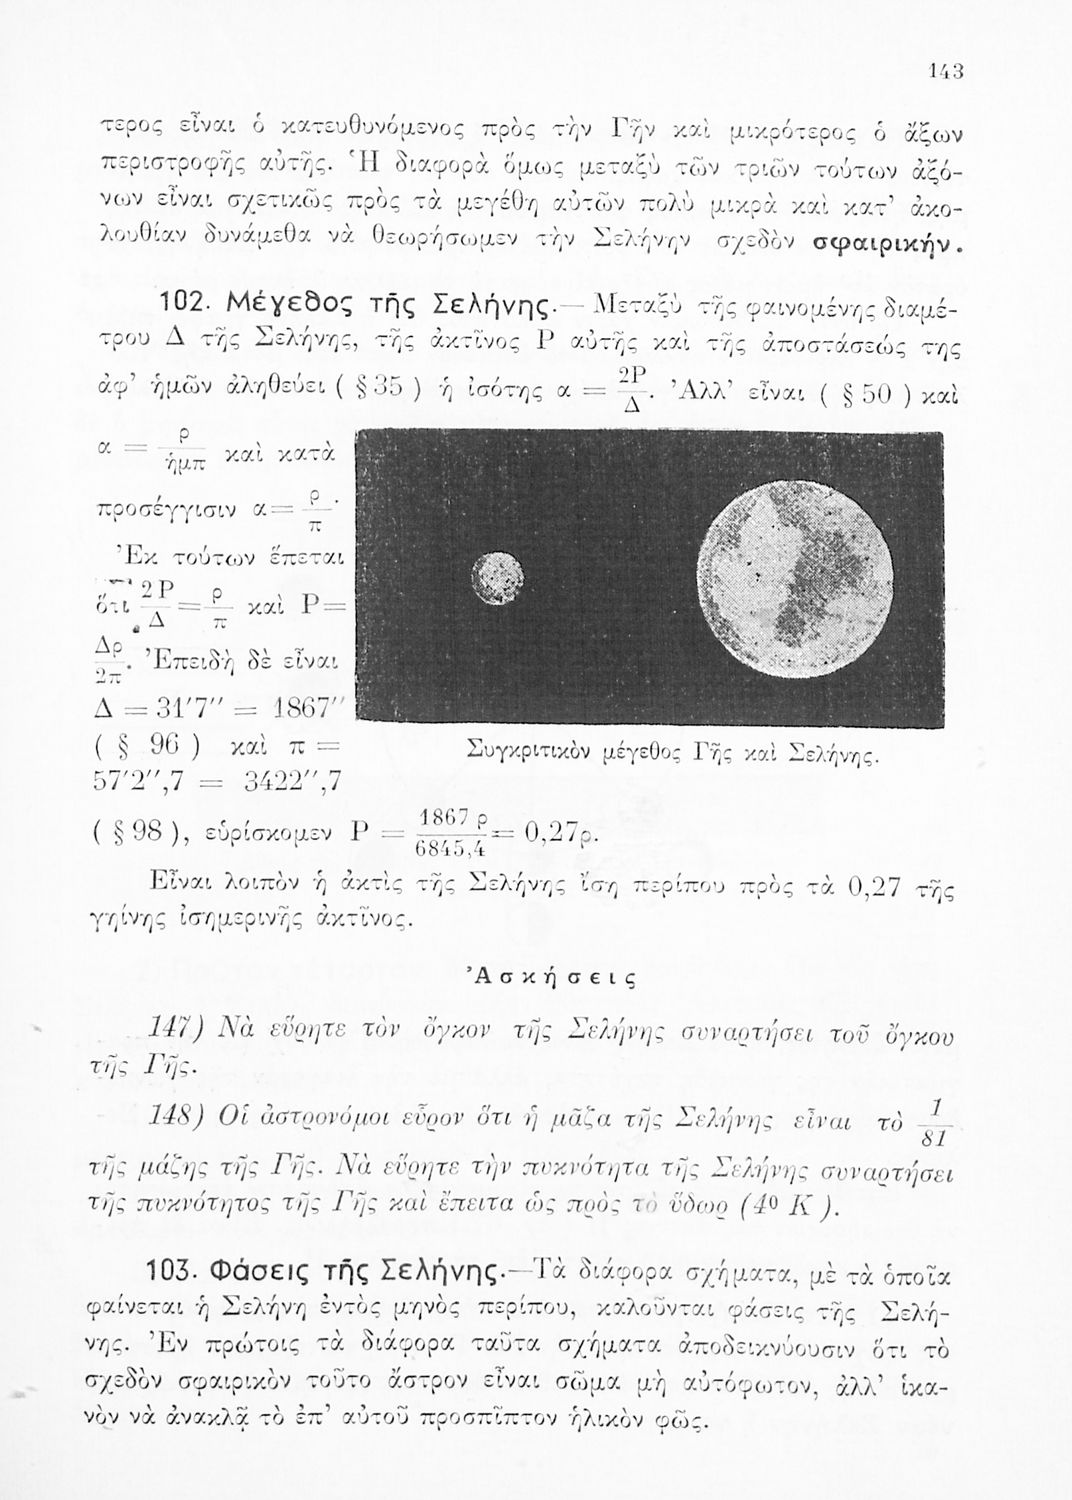 143
τερος εἶναι ὁ κατευθυνόμενος πρὸς τὴν Γῆν καὶ μικρότερος ὁ ἄξων
περιστροφῆς αὐτῆς. Ἡ διαφορὰ ὅμως μεταξὺ τῶν τριῶν τούτων ἀξό-
νων εἶναι σχετικῶς πρὸς τὰ μεγέθη αὐτῶν πολὺ μικρὰ καὶ κατ’ ἀκο-
λουθίαν δυνάμεθα νὰ θεωρήσωμεν τὴν Σελήνην σχεδὸν σφαιρικήν.
102. Μέγεθος τῆς Σελήνης.— Μεταξὺ τῆς φαινομένης διαμέ-
τρου Δ τῆς Σελήνης, τῆς ἀκτῖνος Ρ αὐτῆς καὶ τῆς ἀποστάσεώς της
ἀφ’ ἡμῶν ἀληθεύει ( § 35 ) ἡ ἰσότης α = 2Ρ/Δ. Ἀλλ’ εἶναι ( § 50 ) καὶ
α = ρ/ἡμπ καὶ κατὰ
προσέγγισιν α = ρ/π·
Ἐκ τούτων ἕπεται
ὅτι 2Ρ/Δ = ρ/π καὶ Ρ =
Δρ/2π. Ἐπειδὴ δὲ εἶναι
Δ = 31′7″ = 1867″
( § 96 ) καὶ π =
57′2″,7 = 3422″,7
Συγκριτικὸν μέγεθος Γῆς καὶ Σελήνης.
( § 98 ), εὑρίσκομεν Ρ = 1867 ρ/6845,4 = 0,27ρ.
Εἶναι λοιπὸν ἡ ἀκτὶς τῆς Σελήνης ἴση περίπου πρὸς τὰ 0,27 τῆς
γηίνης ἰσημερινῆς ἀκτῖνος.
Ἀσκήσεις
147) Νὰ εὕρητε τὸν ὄγκον τῆς Σελήνης συναρτήσει τοῦ ὄγκου
τῆς Γῆς.
148) Οἱ ἀστρονόμοι εὗρον ὅτι ἡ μᾶζα τῆς Σελήνης εἶναι τὸ 1/81
τῆς μάζης τῆς Γῆς. Νὰ εὕρητε τὴν πυκνότητα τῆς Σελήνης συναρτήσει
τῆς πυκνότητος τῆς Γῆς καὶ ἔπειτα ὡς πρὸς τὸ ὕδωρ (4⁰ Κ ).
103. Φάσεις τῆς Σελήνης.—Τὰ διάφορα σχήματα, μὲ τὰ ὁποῖα
φαίνεται ἡ Σελήνη ἐντὸς μηνὸς περίπου, καλοῦνται φάσεις τῆς Σελή-
νης. Ἐν πρώτοις τὰ διάφορα ταῦτα σχήματα ἀποδεικνύουσιν ὅτι τὸ
σχεδὸν σφαιρικὸν τοῦτο ἄστρον εἶναι σῶμα μὴ αὐτόφωτον, ἀλλ’ ἱκα-
νὸν νὰ ἀνακλᾷ τὸ ἐπ’ αὐτοῦ προσπῖπτον ἡλικὸν φῶς.